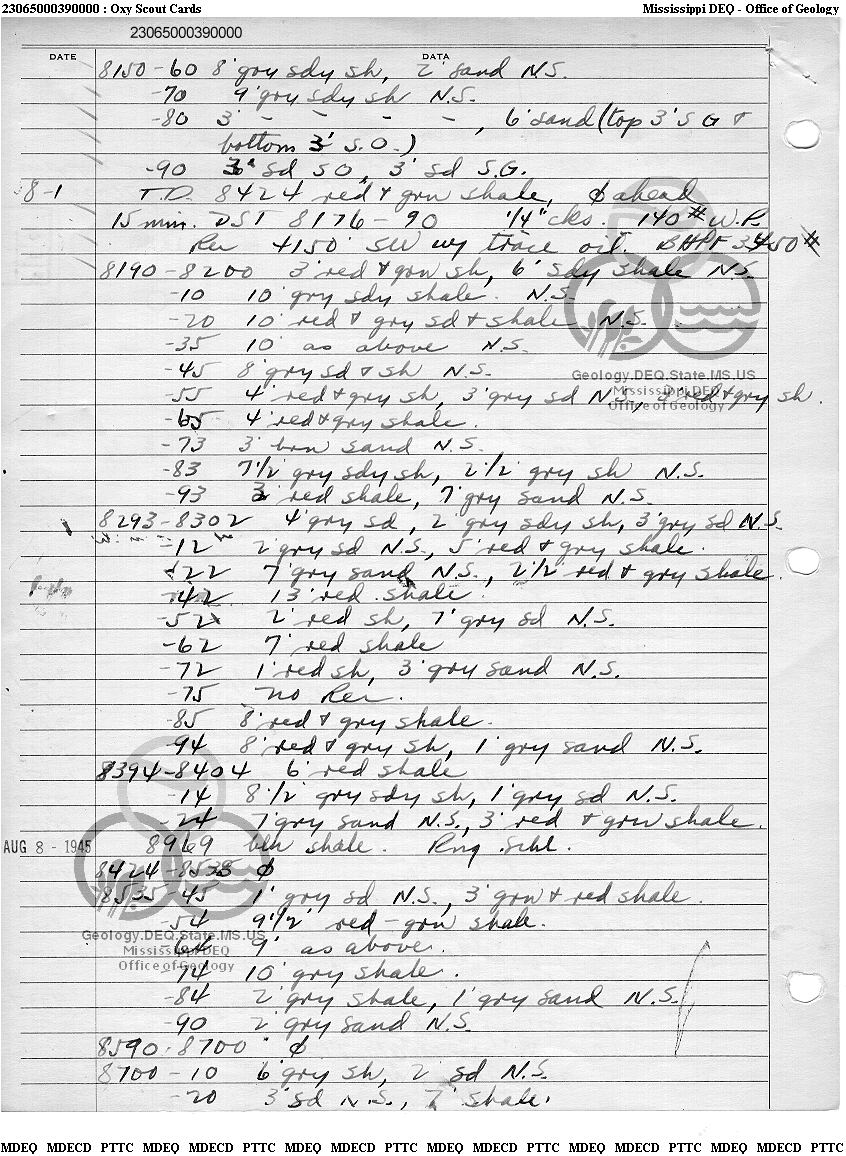 23065000390000 : Oxy Scout Cards Mississippi DEQ - Office of Geology
23065000390000
DATE DATA
8150-60 8' gry sdy sh, 2' sand N.S.
-70 9' gry sdy sh N.S.
-80 3' - - - - , 6' sand (top 3' S G &
bottom 3' S.O.)
-90 3' sd SO, 3' sd S.G.
8-1 T.D. 8424 red & grn shale, ϕ ahead
15 min. DST 8176-90 1/4" cks. 140# W.P.
Rec 4150' SW w/ trace oil. BHPF 3450#
8190-8200 3' red & grn sh, 6' sdy shale N.S.
-10 10' gry sdy shale. N.S.
-20 10' red & gry sd & shale N.S.
-35 10' as above N.S.
-45 8' gry sd & sh N.S.
Geology.DEQ.State.MS.US
-55 4' red & gry sh, 3' gry sd N.S., red & gry sh.
Mississippi DEQ
Office of Geology
-65 4' red & gry shale.
-73 3' brn sand N.S.
-83 7 1/2' gry sdy sh, 2 1/2' gry sh N.S.
-93 3' red shale, 7' gry sand N.S.
8293-8302 4' gry sd, 2' gry sdy sh, 3' gry sd N.S.
-12 2' gry sd N.S., 5' red & gry shale.
-22 7' gry sand N.S., 2 1/2' red & gry shale.
-42 13' red shale.
-52 2' red sh, 7' gry sd N.S.
-62 7' red shale
-72 1' red sh, 3' gry sand N.S.
-75 no Rec.
-85 8' red & gry shale.
-94 8' red & gry sh, 1' gry sand N.S.
8394-8404 6' red shale
-14 8 1/2' gry sdy sh, 1' gry sd N.S.
-24 7' gry sand N.S., 3' red & grn shale.
AUG 8 - 1945 8969 blk shale. Rng Schl.
8424-8535 ϕ
8535-45 1' gry sd N.S., 3' grn & red shale.
-54 9 1/2' red-grn shale.
Geology.DEQ.State.MS.US
-64 9' as above.
Mississippi DEQ
Office of Geology
-74 10' gry shale.
-84 2' gry shale, 1' gry sand N.S.
-90 2' gry sand N.S.
8590-8700 ϕ
8700-10 6' gry sh, 2' sd N.S.
-20 3' sd N.S., 7' shale.
MDEQ MDECD PTTC MDEQ MDECD PTTC MDEQ MDECD PTTC MDEQ MDECD PTTC MDEQ MDECD PTTC MDEQ MDECD PTTC